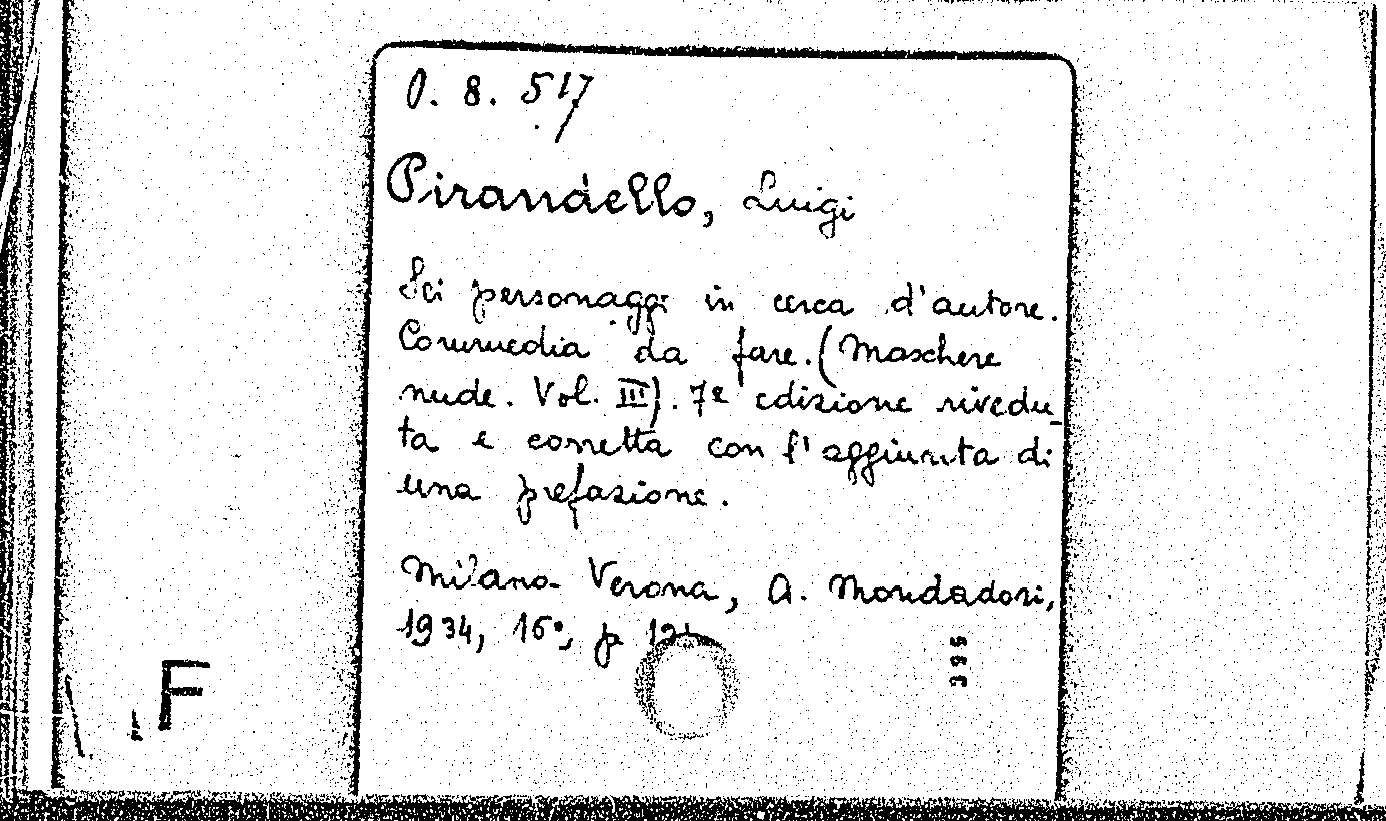 O. 8. 517
Pirandello, Luigi
Sei personaggi in cerca d'autore.
Commedia da fare. (Maschere
nude. Vol. III). 7ª edizione rivedu_
ta e corretta con l'aggiunta di
una prefazione.
Milano-Verona, A. Mondadori,
1934, 16°, p
395
F